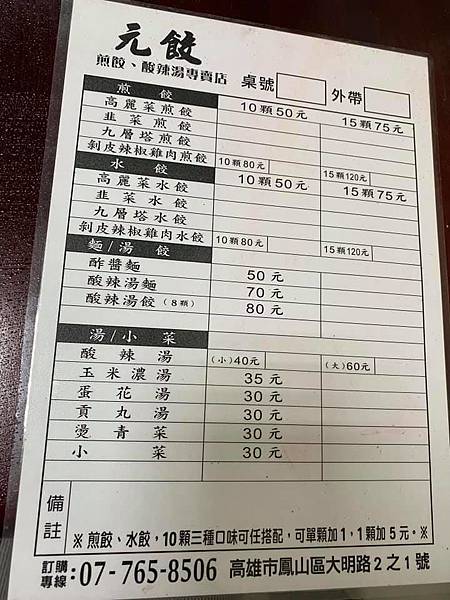 元餃
煎餃、酸辣湯專賣店 桌號 外帶
煎餃
高麗菜煎餃 10顆50元 15顆75元
韭菜煎餃
九層塔煎餃
剝皮辣椒雞肉煎餃 10顆80元 15顆120元
水餃
高麗菜水餃 10顆50元 15顆75元
韭菜水餃
九層塔水餃
剝皮辣椒雞肉水餃 10顆80元 15顆120元
麵/湯餃
酢醬麵 50元
酸辣湯麵 70元
酸辣湯餃(8顆) 80元
湯/小菜
酸辣湯 (小)40元 (大)60元
玉米濃湯 35元
蛋花湯 30元
貢丸湯 30元
燙青菜 30元
小菜 30元
備註
※煎餃、水餃，10顆三種口味可任搭配，可單顆加1，1顆加5元。※
訂購專線：07-765-8506 高雄市鳳山區大明路2之1號